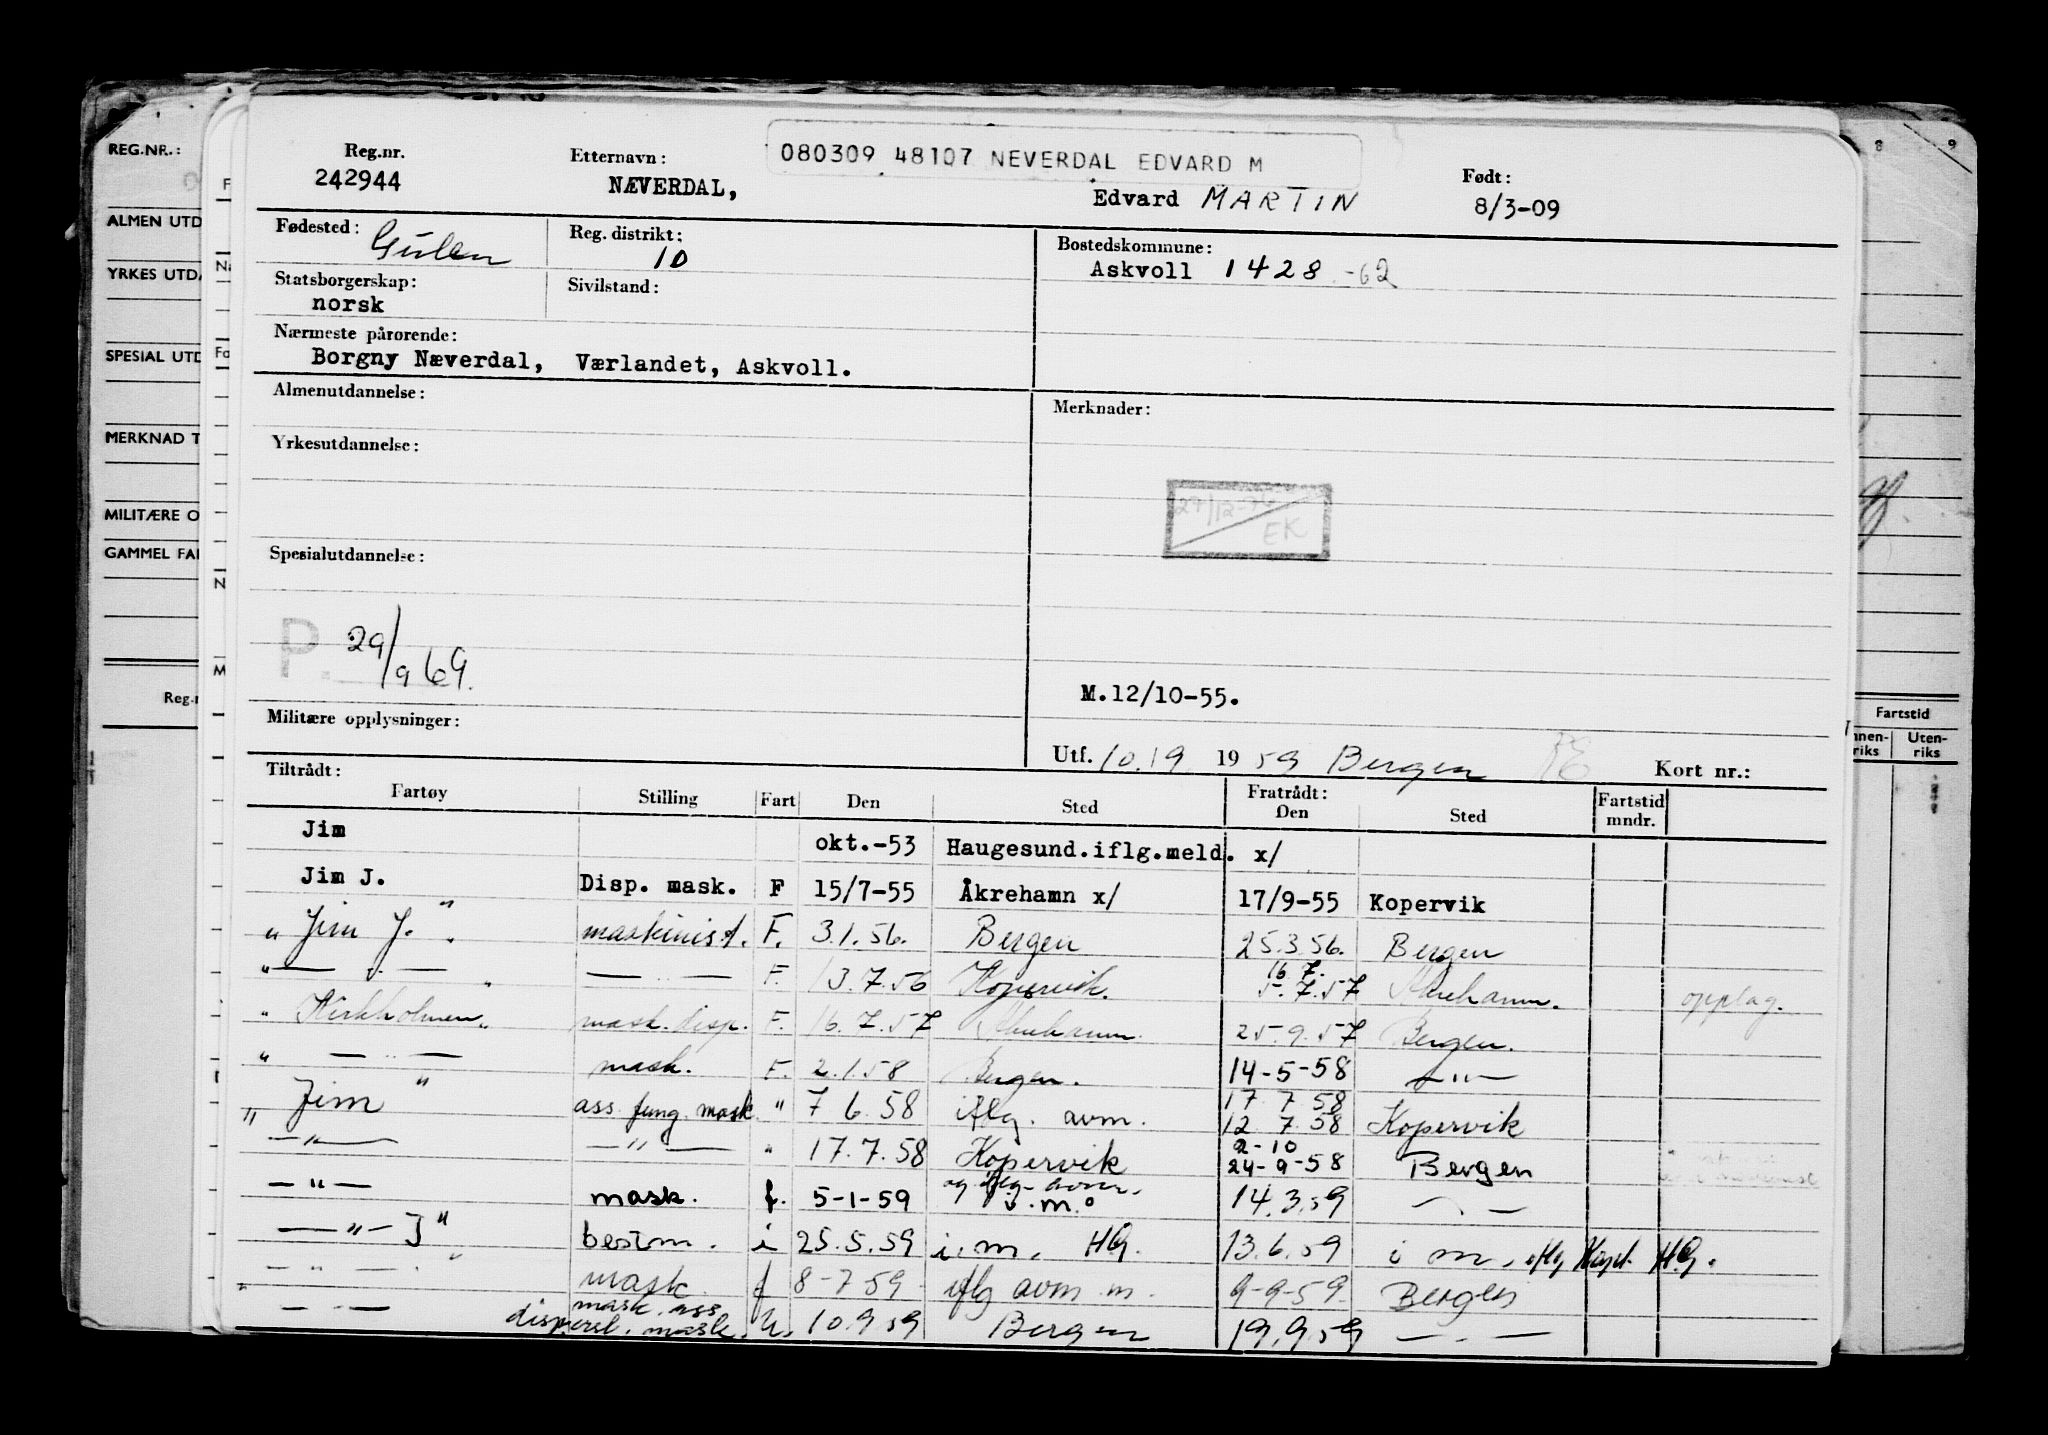 080309 48107 NEVERDAL EDVARD M
Reg.nr. Etternavn: Født:
242944 NÆVERDAL, Edvard MARTIN 8/3-09
Fødested: Gulen Reg. distrikt: 10 Bostedskommune:
Askvoll 1428 -62
Statsborgerskap: norsk Sivilstand:
Nærmeste pårørende:
Borgny Næverdal, Værlandet, Askvoll.
Almenutdannelse: Merknader:
Yrkesutdannelse:
EK
Spesialutdannelse:
P. 29/9 69.
M.12/10-55.
Militære opplysninger:
Utf. 10.19 1959 Bergen Kort nr.:
Tiltrådt: Fratrådt:
Fartøy Stilling Fart Den Sted Den Sted Fartstid mndr.
Jim okt.-53 Haugesund.iflg.meld. x/
Jim J. Disp. mask. F 15/7-55 Åkrehamn x/ 17/9-55 Kopervik
" Jim J. " maskinist. F. 3.1.56. Bergen 25.3 56. Bergen
" — " — — " — F. 13.7.56 Kopervik. 16.7. 5.7.57 Åkrehamn. opplag.
" Kirkholmen " mask. disp. F. 16.7.57 Åkrehamn. 25.9.57 Bergen.
" — " — mask. F. 2.1.58 Bergen. 14-5-58 — " —
" Jim " ass. fung. mask " 7 6. 58 iflg. avm. 17 7 58 12 7.58 Kopervik
— " — — " — " 17.7.58 Kopervik 2-10 24-9-58 Bergen
— " — mask. f. 5-1-59 og iflg. avm. i.m. 14.3.59 — " —
— " — J " bestm. i 25.5.59 i. m. HG. 13.6.59 i m, iflg HG.
— " — " mask. f 8-7 59 iflg avm. m. 9-9-59. Bergen
" — " — mask. ass. dispensl. mask. U. 10.9.59 Bergen 19.9.59 — " —
REG.NR.:
ALMEN UTD
YRKES UTDA
SPESIAL UTD
MERKNAD T
MILITÆRE O
GAMMEL FA
Reg.
8 9
Fartstid
nnen-riks Uten-riks